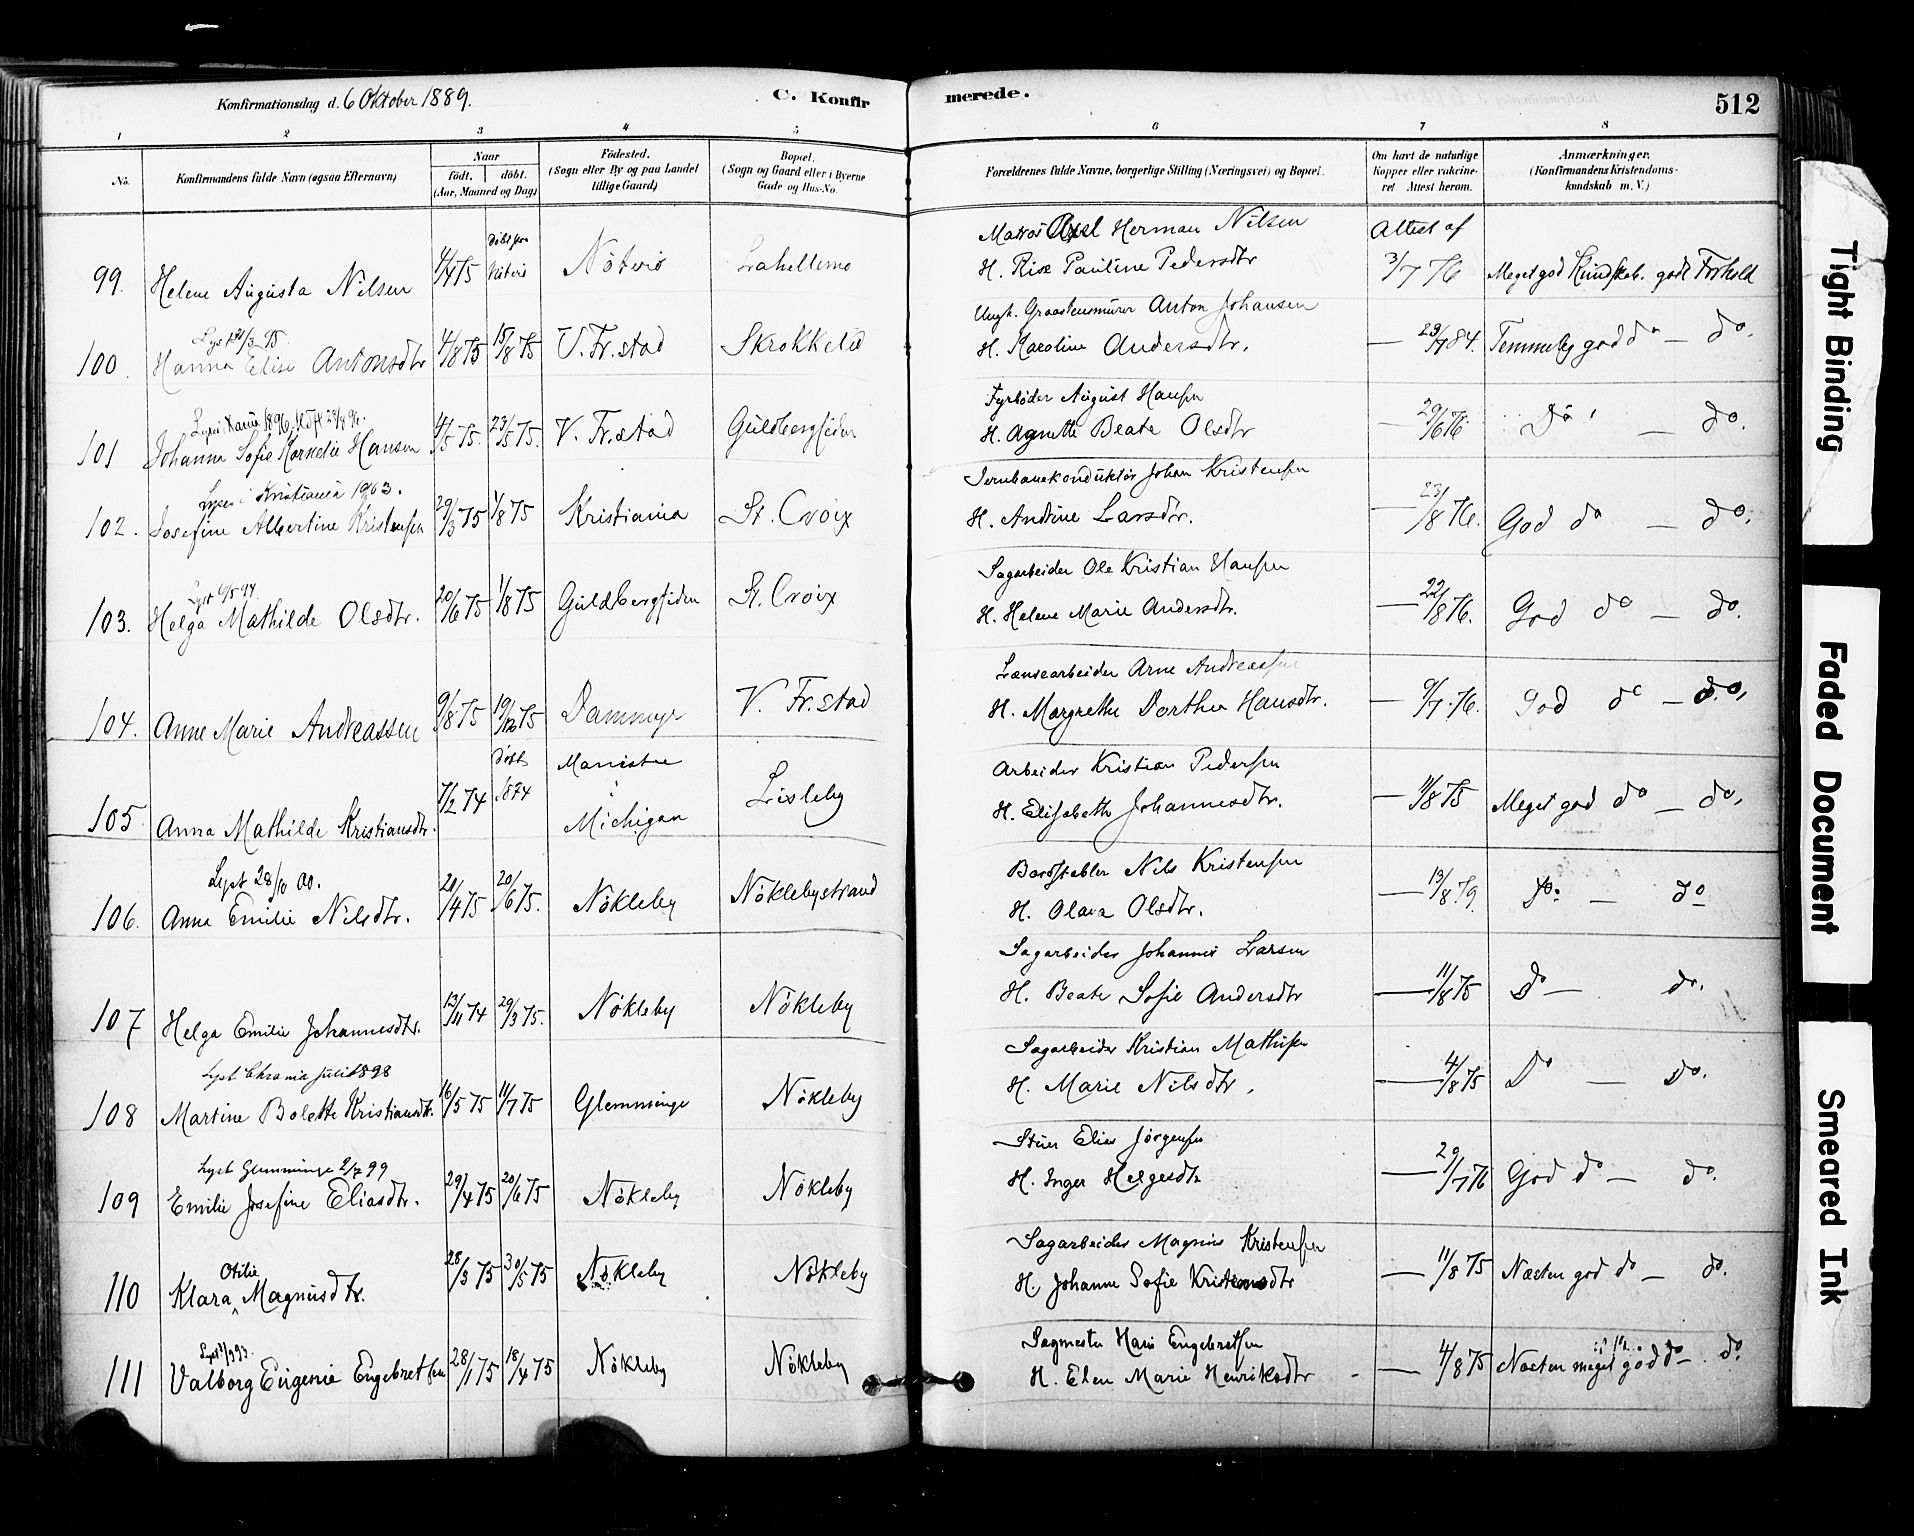 Konfirmationsdag d. 6 Oktober 1889.
C. Konfirmerede.
512
1 2 3 4 5 6 7 8
No. Konfirmandens fulde Navn (ogsaa Efternavn)
Naar födt. döbt. (Aar, Maaned og Dag)
Födested. (Sogn eller By og paa Landet tillige Gaard)
Bopæl. (Sogn og Gaard eller i Byerne Gade og Hus-No.
Forældrenes fulde Navne, borgerlige Stilling (Næringsvei) og Bopæl.
Om havt de naturlige Kopper eller vakcineret Attest herom.
Anmærkninger. (Konfirmandens Kristendomskundskab m. V.)
Matros Axel Herman Nilsen Attest af
99. Helene Augusta Nilsen 4/4 75 Nötterö Lahellemo H. Pauline Pedersdtr 3/7 76 Meget god Kundskab. godt Forhold
Lyst 31/3 95. Ungk. Graastensmurer Anton Johansen
100. Hanna Elise Antonsdtr 4/8 75 15/8 75 V. Fr.stad Skrokkelö H. Karoline Andersdtr. — 84. Temmelig god do — do.
Fyrböder August Hansen
101 Johanna Sofie Kornelie Hansen 4/5 75. 23/5 75. V. Fr.stad Guldbergsiden H. Agnette Beate Olsdtr — 29/6 76. Do — do.
Lyses i Kristiania 1903. Jernbanekonduktör Johan Kristensen
102. Josefine Albertine Kristensen 29/3 75 1/8 75 Kristiania St. Croix H. Andrine Larsdtr. — 23/8 76. God do — do.
Lyst 6/5 94. Sagarbeider Ole Kristian Hansen
103. Helga Mathilde Olsdtr. 20/6 75 1/8 75 Guldbergsiden St. Croix H. Helene Marie Andersdtr. — 22/8 76. God do — do.
Lænsearbeider Arne Andreassen
104. Anne Marie Andreassen 9/8 75 19/12 75 Dammyr V. Fr.stad H. Margrethe Dorthea Hansdtr. — 9/7 76. God do — do.
döbt Manistee Arbeider Kristian Pedersen
105. Anna Mathilde Kristiansdtr. 7/2 74 1874 i Michigan Lisleby H. Elisabeth Johannesdtr. — 11/8 75 Meget god do — do.
Lyst 28/10 00. Bordstabler Nils Kristensen
106. Anna Emilie Nilsdtr. 20/4 75 20/6 75. Nökleby Nöklebystrand H. Olava Olsdtr. — 13/8 79. do. — do
Sagarbeider Johannes Larsen
107 Helga Emilie Johannesdtr. 13/11 74 29/3 75. Nökleby Nökleby H. Beate Sofie Andersdtr — 11/8 75 Do — do.
Lyst Chrania juli 1898 Sagarbeider Kristian Mathisen
108 Martine Bolette Kristiansdtr. 16/5 75 11/7 75 Glemminge Nökleby H. Marie Nilsdtr. — 4/8 75 Do — do.
Lyst Glemminge 2/7 99 Stuer Elias Jörgensen
109 Emilie Josefine Eliasdtr. 29/4 75 20/6 75 Nökleby Nökleby H. Inger Helgesdtr — 29/7 76 God do — do.
Otilie Sagarbeider Magnus Kristensen
110 Klara ^ Magnusdtr. 28/3 75 30/5 75 Nökleby Nökleby H. Johanne Sofie Kristiansdtr — 11/8 75 Næsten god do — do.
Sagmester Hans Engebretsen
111 Valborg Eugenie Engebretsen 28/1 75 18/4 75 Nökleby Nökleby H. Elen Marie Henriksdtr — 4/8 75 Næsten meget god do — do.
Tight Binding
Faded Document
Smeared Ink